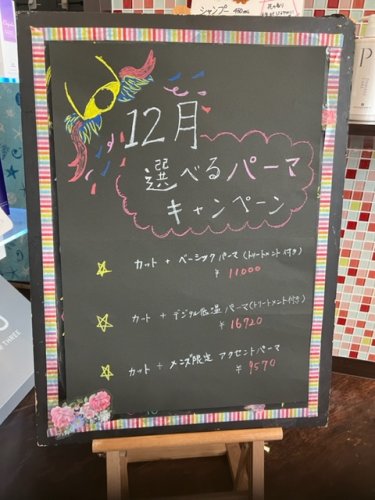 シャンプー 450mL
12月
選べるパーマ
キャンペーン
カット + ベーシックパーマ (トリートメント付き)
¥ 11000
カート + デジタル低温パーマ (トリートメント付き)
¥ 16720
カット + メンズ限定 アクセントパーマ
¥ 9570
THREE